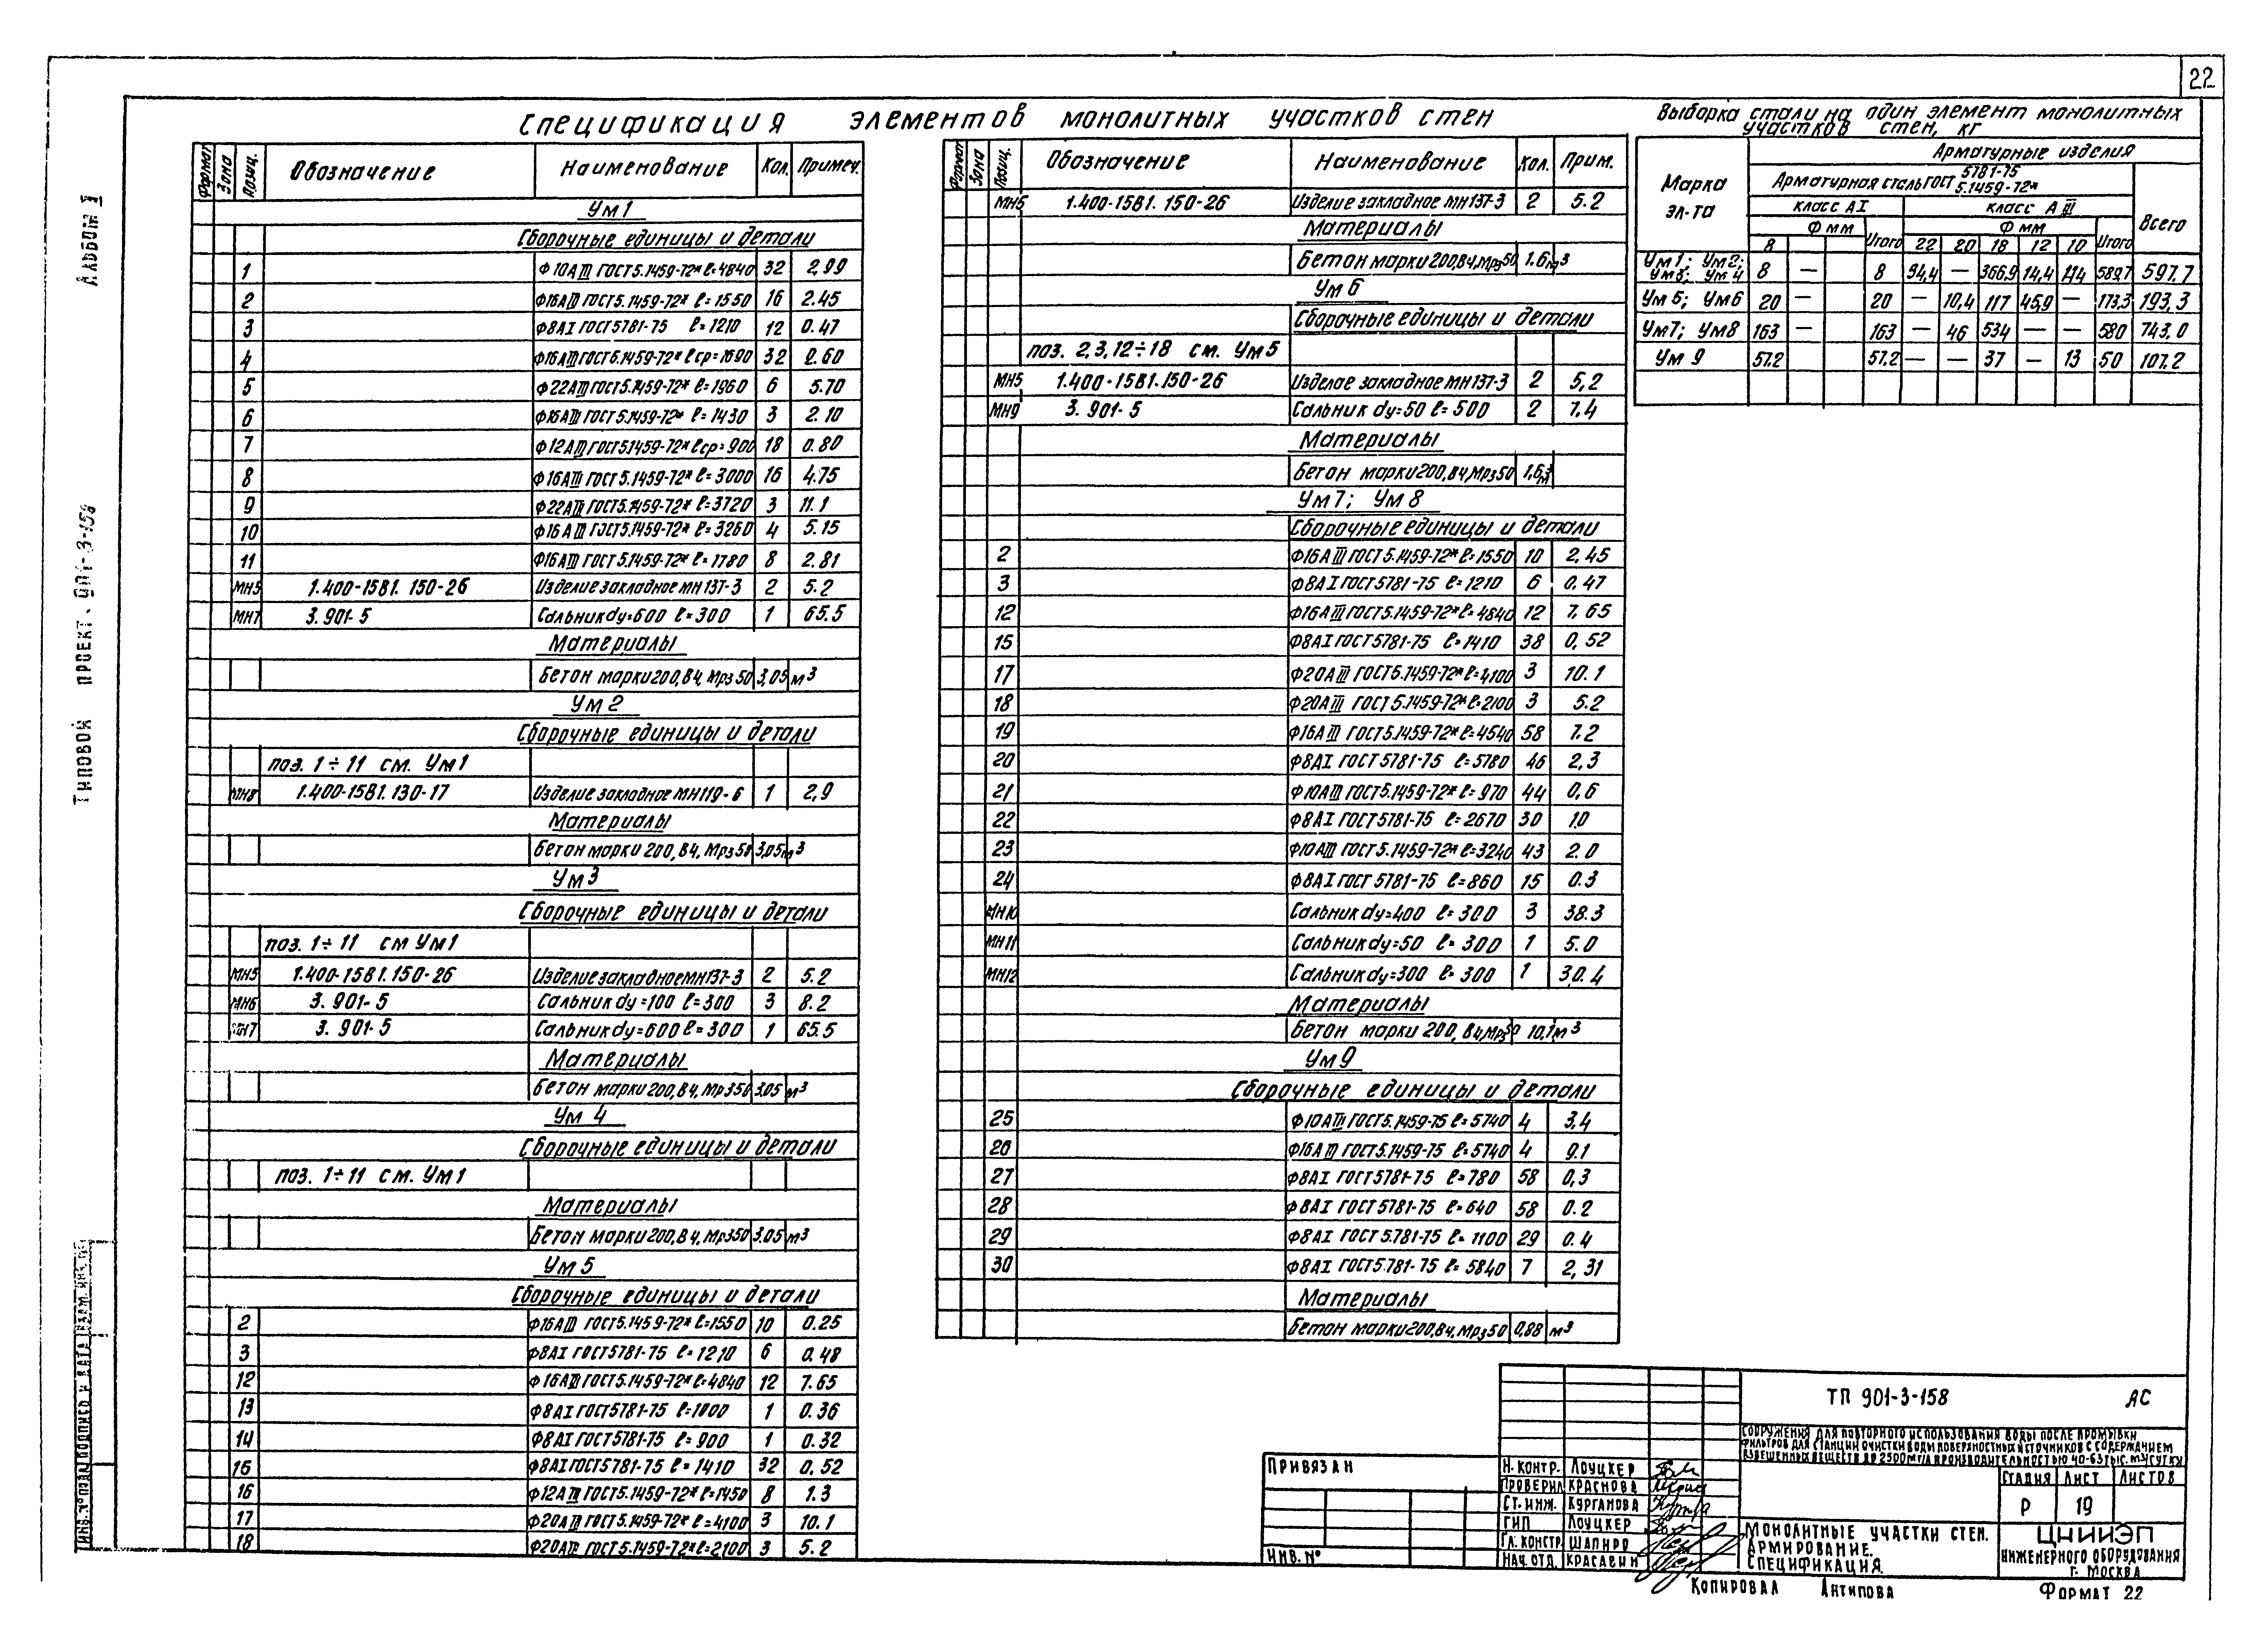 22
Спецификация элементов монолитных участков стен
Формат Зона Позиц. Обозначение Наименование Кол. Примеч.
Ум1
Сборочные единицы и детали
1 Ф10АIII ГОСТ 5.1459-72* ℓ=4840 32 2,99
2 Ф16АIII ГОСТ 5.1459-72* ℓ=1550 16 2.45
3 Ф8АI ГОСТ 5781-75 ℓ=1210 12 0.47
4 Ф16АIII ГОСТ 5.1459-72* ℓср=1690 32 2.60
5 Ф22АIII ГОСТ 5.1459-72* ℓ=1960 6 5.70
6 Ф16АIII ГОСТ 5.1459-72* ℓ=1430 3 2.10
7 Ф12АIII ГОСТ 5.1459-72* ℓср=900 18 0.80
8 Ф16АIII ГОСТ 5.1459-72* ℓ=3000 16 4.75
9 Ф22АIII ГОСТ 5.1459-72* ℓ=3720 3 11.1
10 Ф16АIII ГОСТ 5.1459-72* ℓ=3260 4 5.15
11 Ф16АIII ГОСТ 5.1459-72* ℓ=1780 8 2.81
МН5 1.400-15В1.150-26 Изделие закладное МН137-3 2 5.2
МН7 3.901-5 Сальник dу=600 ℓ=300 1 65.5
Материалы
Бетон марки 200, В4, Мрз 50 3,05 м³
Ум2
Сборочные единицы и детали
поз. 1÷11 см. Ум1
МН8 1.400-15В1.130-17 Изделие закладное МН119-6 1 2,9
Материалы
Бетон марки 200, В4, Мрз 50 3,05 м³
Ум3
Сборочные единицы и детали
поз. 1÷11 см Ум1
МН5 1.400-15В1.150-26 Изделие закладное МН137-3 2 5.2
МН6 3.901-5 Сальник dу=100 ℓ=300 3 8.2
МН7 3.901-5 Сальник dу=600 ℓ=300 1 65.5
Материалы
Бетон марки 200, В4, Мрз50 3.05 м³
Ум 4
Сборочные единицы и детали
поз. 1÷11 см. Ум1
Материалы
Бетон марки 200, В4, Мрз50 3.05 м³
Ум5
Сборочные единицы и детали
2 Ф16АIII ГОСТ 5.1459-72* ℓ=1550 10 0.25
3 Ф8АI ГОСТ 5781-75 ℓ=1210 6 0.48
12 Ф16АIII ГОСТ 5.1459-72* ℓ=4840 12 7.65
13 Ф8АI ГОСТ 5781-75 ℓ=1000 1 0.36
14 Ф8АI ГОСТ 5781-75 ℓ=900 1 0.32
16 Ф8АI ГОСТ 5781-75 ℓ=1410 32 0,52
16 Ф12АIII ГОСТ 5.1459-72* ℓ=1450 8 1.3
17 Ф20АIII ГОСТ 5.1459-72* ℓ=4100 3 10.1
18 Ф20АIII ГОСТ 5.1459-72* ℓ=2100 3 5.2
Формат Зона Позиц. Обозначение Наименование Кол. Прим.
МН5 1.400-15В1.150-26 Изделие закладное МН137-3 2 5.2
Материалы
Бетон марки 200, В4, Мрз50 1.6 м³
Ум 6
Сборочные единицы и детали
поз. 2,3,12÷18 см. Ум5
МН5 1.400-15В1.150-26 Изделие закладное МН137-3 2 5,2
МН9 3.901-5 Сальник dу=50 ℓ=500 2 7.4
Материалы
Бетон марки 200, В4, Мрз50 1,6 м³
Ум7; Ум 8
Сборочные единицы и детали
2 Ф16АIII ГОСТ 5.1459-72* ℓ=1550 10 2,45
3 Ф8АI ГОСТ 5781-75 ℓ=1210 6 0.47
12 Ф16АIII ГОСТ 5.1459-72* ℓ=4840 12 7.65
15 Ф8АI ГОСТ 5781-75 ℓ=1410 38 0,52
17 Ф20АIII ГОСТ 5.1459-72* ℓ=4100 3 10.1
18 Ф20АIII ГОСТ 5.1459-72* ℓ=2100 3 5.2
19 Ф16АIII ГОСТ 5.1459-72* ℓ=4540 58 7.2
20 Ф8АI ГОСТ 5781-75 ℓ=5780 46 2,3
21 Ф10АIII ГОСТ 5.1459-72* ℓ=970 44 0,6
22 Ф8АI ГОСТ 5781-75 ℓ=2670 30 1,0
23 Ф10АIII ГОСТ 5.1459-72* ℓ=3240 43 2.0
24 Ф8АI ГОСТ 5781-75 ℓ=860 15 0.3
МН10 Сальник dу=400 ℓ=300 3 38.3
МН11 Сальник dу=50 ℓ=300 1 5.0
МН12 Сальник dу=300 ℓ=300 1 30.4
Материалы
Бетон марки 200, В4, Мрз50 10,1 м³
Ум9
Сборочные единицы и детали
25 Ф10АIII ГОСТ 5.1459-75 ℓ=5740 4 3,4
26 Ф16АIII ГОСТ 5.1459-75 ℓ=5740 4 9.1
27 Ф8АI ГОСТ 5781-75 ℓ=780 58 0,3
28 Ф8АI ГОСТ 5781-75 ℓ=640 58 0.2
29 Ф8АI ГОСТ 5.781-75 ℓ=1100 29 0.4
30 Ф8АI ГОСТ 5.781-75 ℓ=5840 7 2,31
Материалы
Бетон марки 200, В4, Мрз50 0,88 м³
Выборка стали на один элемент монолитных
участков стен, кг
Марка эл-та Арматурные изделия
Арматурная сталь ГОСТ 5781-75 5.1459-72* Всего
класс АI класс АIII
Ф мм Итого Ф мм Итого
8 22 20 18 12 10
Ум1; Ум2; Ум3; Ум 4 8 — 8 94,4 — 366,9 14,4 114 589,7 597.7
Ум 5; Ум6 20 — 20 — 10,4 117 45,9 — 173,3 193,3
Ум7; Ум8 163 — 163 — 46 534 — — 580 743,0
Ум 9 57.2 57.2 — — 37 — 13 50 107.2
Альбом I
Типовой проект 901-3-158
Инв. № подл. Подпись и дата Взам. инв. №
Привязан
Инв. №
Н. контр. Лоуцкер
Проверил Краснова
Ст. инж. Курганова
ГИП Лоуцкер
Гл. констр. Шапиро
Нач. отд. Красавин
ТП 901-3-158 АС
Сооружения для повторного использования воды после промывки
фильтров для станции очистки воды поверхностных источников с содержанием
взвешенных веществ до 2500 мг/л производительностью 40-63 тыс. м³/сутки
Стадия Лист Листов
Р 19
Монолитные участки стен.
Армирование.
Спецификация.
ЦНИИЭП
инженерного оборудования
г. Москва
Копировал Антипова
Формат 22